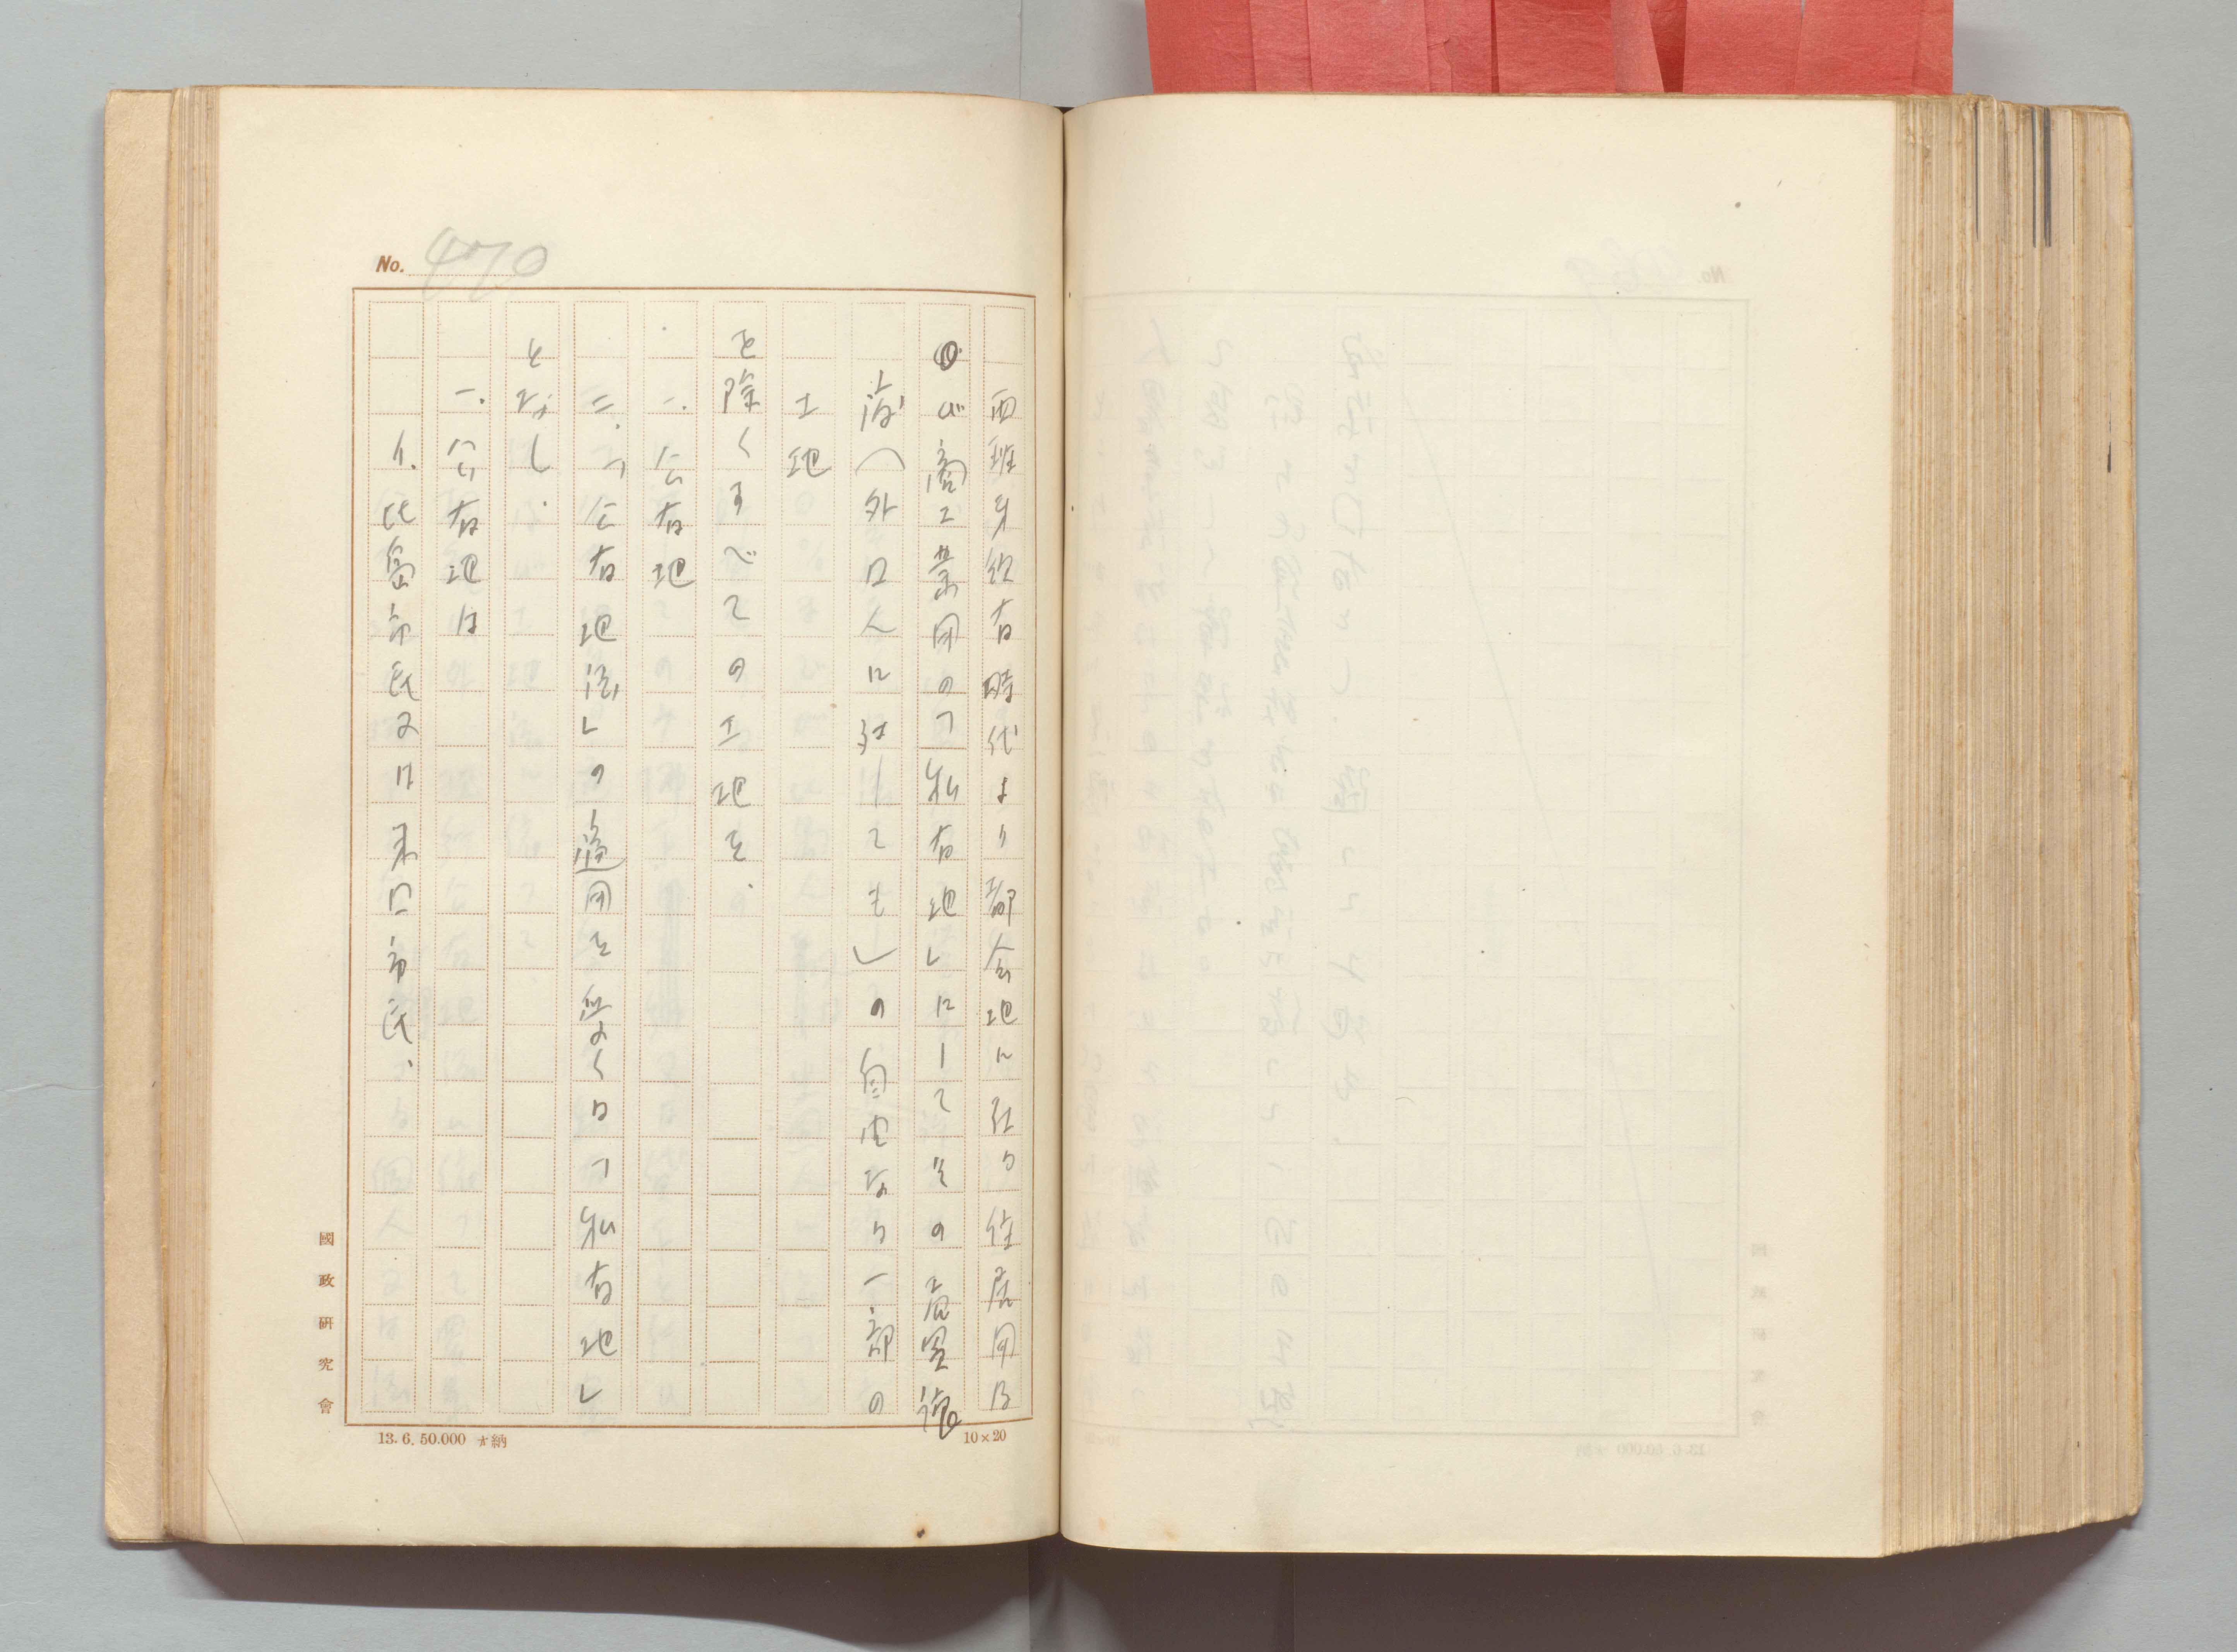 No. 470
西班牙領有時代より都会地に於ける住居用及
び商工業用の「私有地」にしてその賣買譲
渡(外国人に対しても)の自由なり一部の
土地
を除くすべての土地を、
一、公有地
二、「公有地法」の適用を受くる「私有地」
となし、
一、公有地は
イ、比島市民又は米国市民、
國政研究會
13. 6. 50.000 納
10×20